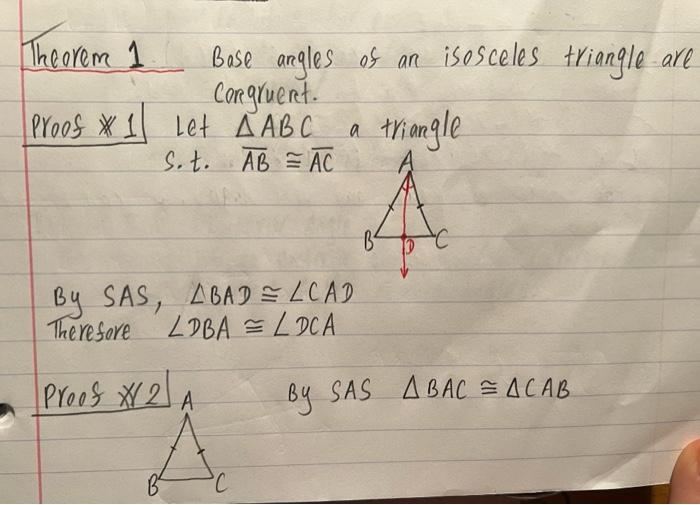 Theorem 1 Base angles of an isosceles triangle are
congruent.
Proof #1 Let △ABC a triangle
s.t. AB ≅ AC
A
B D C
By SAS, ∠BAD ≅ ∠CAD
Therefore ∠DBA ≅ ∠DCA
Proof #2 By SAS △BAC ≅ △CAB
A
B C